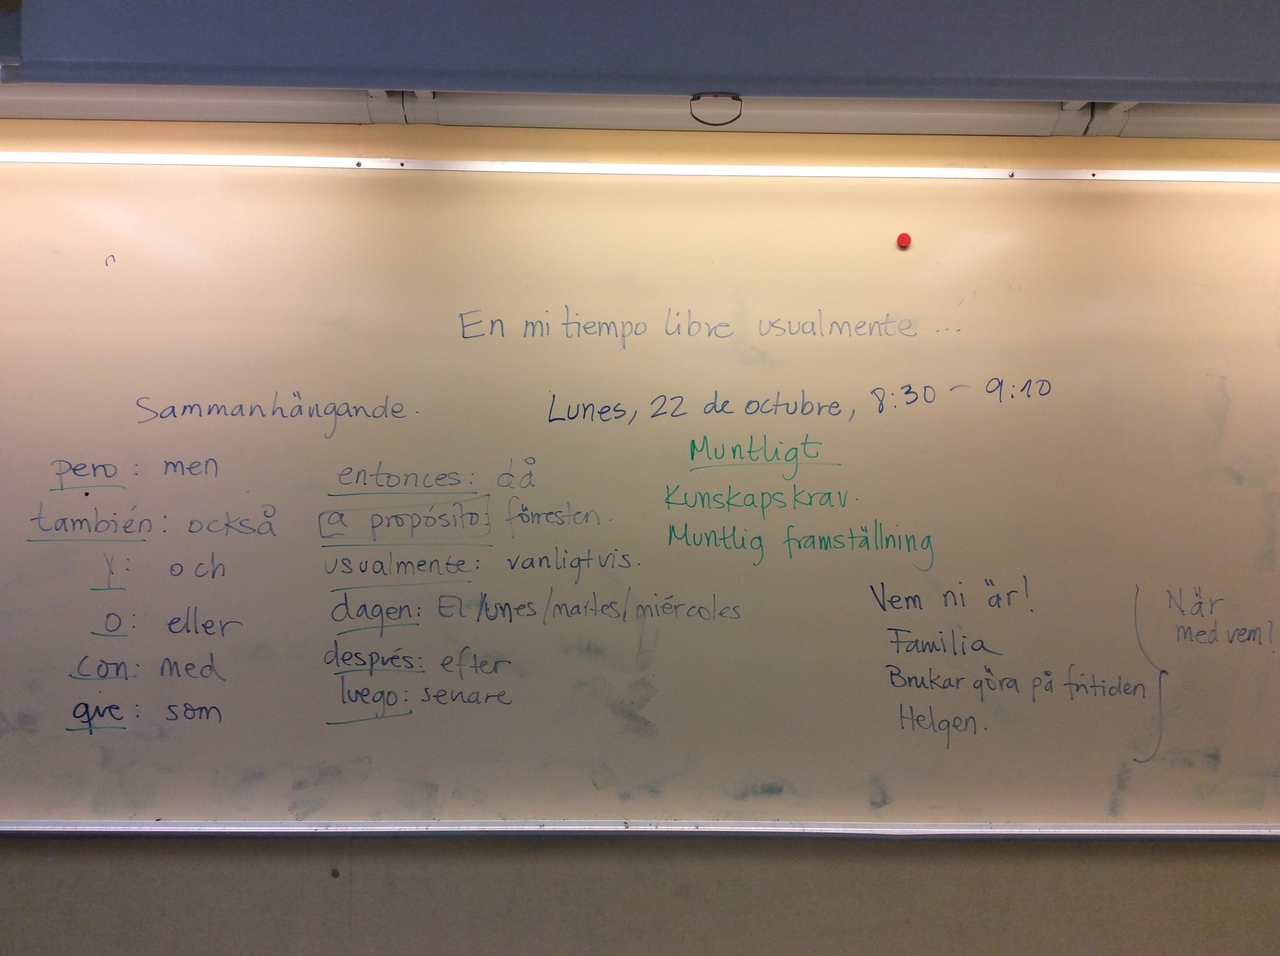 En mi tiempo libre usualmente ...
Sammanhängande.
Lunes, 22 de octubre, 8:30 - 9:10
pero: men
también: också
y: och
o: eller
con: med
que: som
entonces: då
a propósito: förresten.
usualmente: vanligtvis.
dagen: El lunes/martes/miércoles
después: efter
luego: senare
Muntligt
Kunskapskrav.
Muntlig framställning
Vem ni är!
Familia
Brukar göra på fritiden
Helgen.
När
med vem?